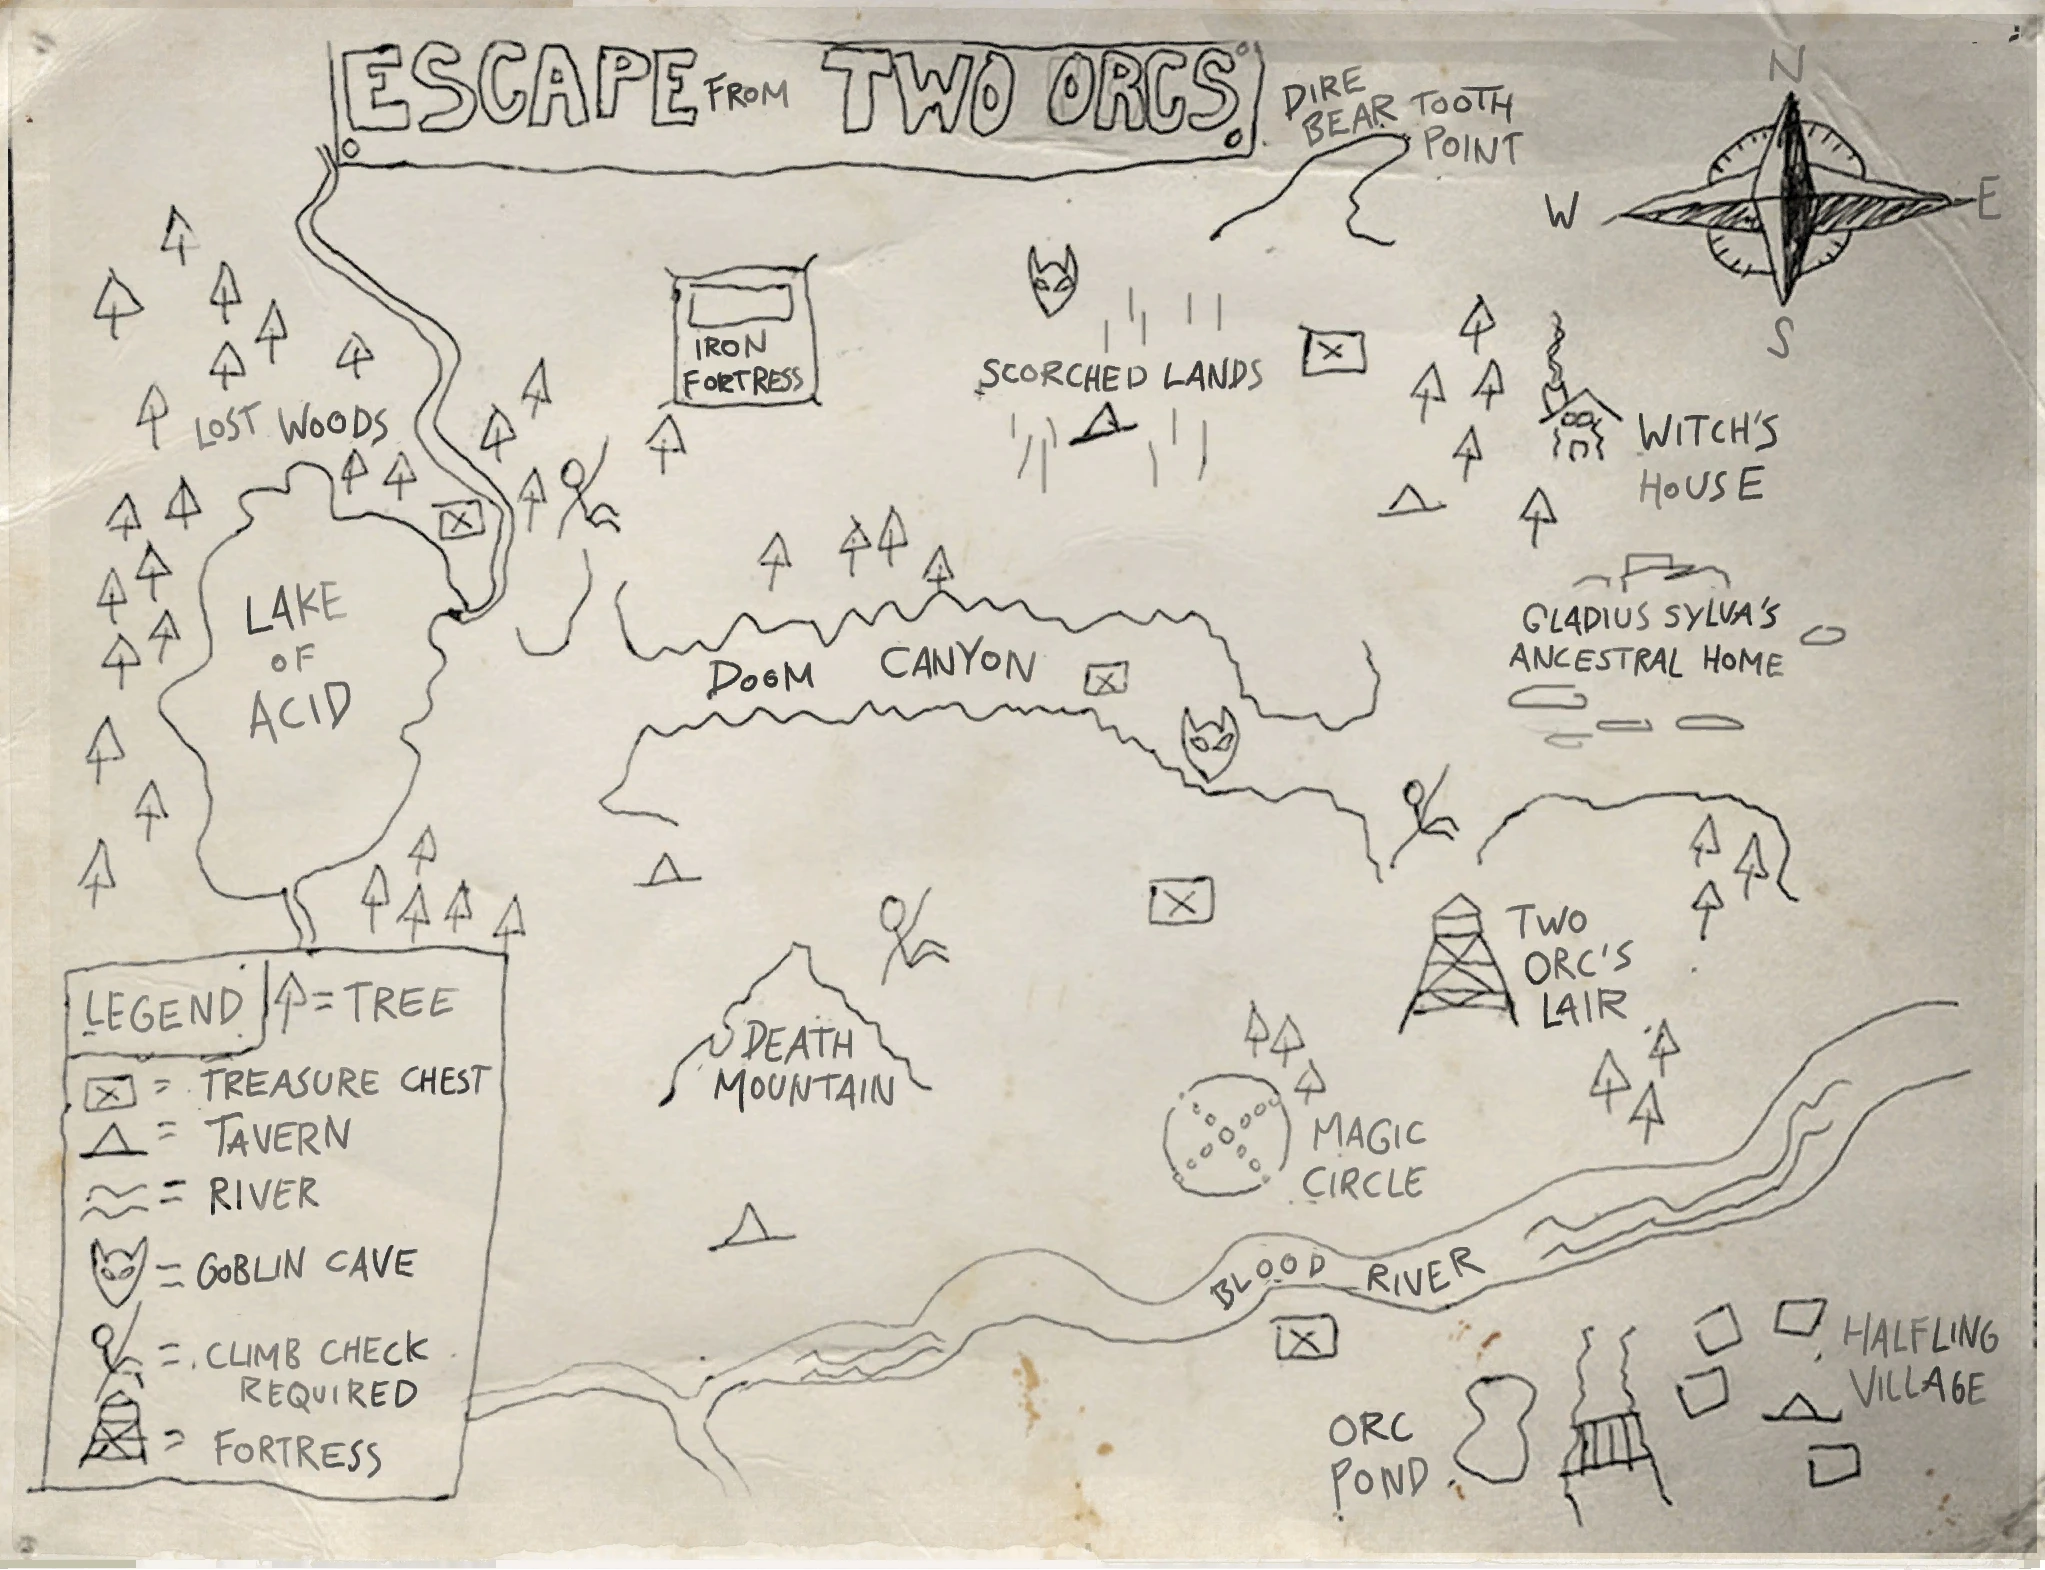 ESCAPE FROM TWO ORCS
DIRE
BEAR TOOTH
POINT
N
W
E
S
IRON
FORTRESS
SCORCHED LANDS
LOST WOODS
WITCH'S
HOUSE
LAKE
OF
ACID
DOOM CANYON
GLADIUS SYLVA'S
ANCESTRAL HOME
TWO
ORC'S
LAIR
DEATH
MOUNTAIN
MAGIC
CIRCLE
BLOOD RIVER
HALFLING
VILLAGE
ORC
POND
LEGEND
= TREE
= TREASURE CHEST
= TAVERN
= RIVER
= GOBLIN CAVE
= CLIMB CHECK
REQUIRED
= FORTRESS